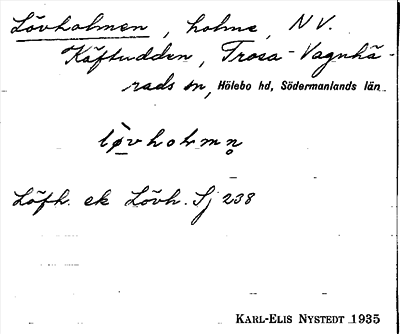 Lövholmen, holme, NV.
Käftudden, Trosa-Vagnhä-
rads sn, Hölebo hd, Södermanlands län
løvholmn̥
Löfh. ek Lövh. Sj 238
KARL-ELIS NYSTEDT 1935